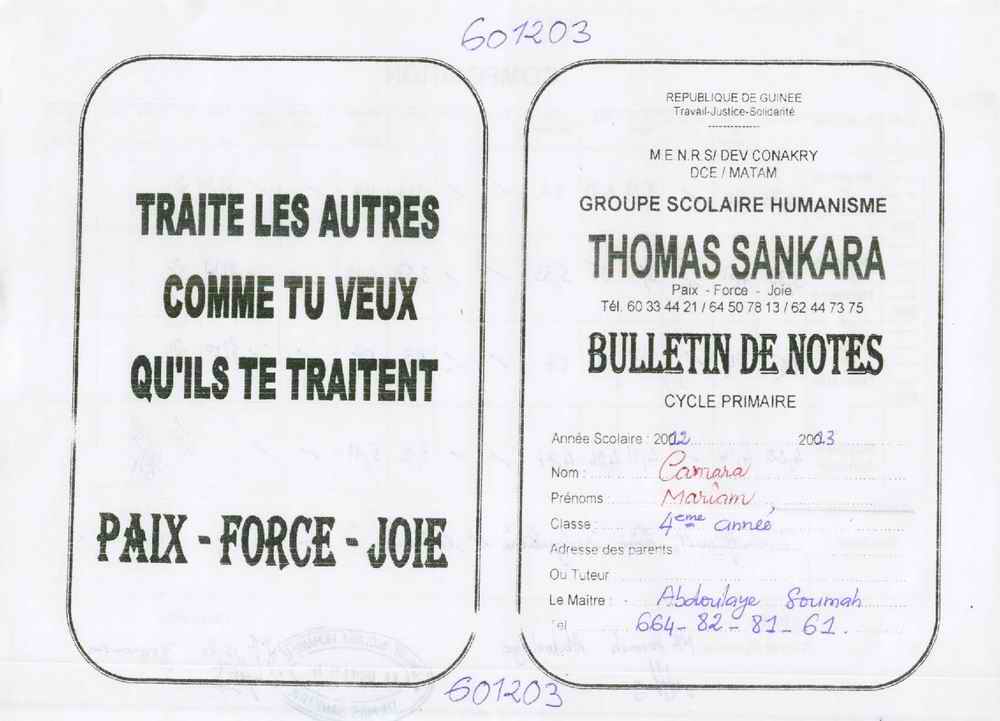 601203
TRAITE LES AUTRES
COMME TU VEUX
QU'ILS TE TRAITENT
PAIX - FORCE - JOIE
REPUBLIQUE DE GUINEE
Travail-Justice-Solidarité
M.E.N.R.S/ DEV CONAKRY
DCE / MATAM
GROUPE SCOLAIRE HUMANISME
THOMAS SANKARA
Paix - Force - Joie
Tél. 60 33 44 21 / 64 50 78 13 / 62 44 73 75
BULLETIN DE NOTES
CYCLE PRIMAIRE
Année Scolaire : 2012 2013
Nom : Camara
Prénoms : Mariam
Classe : 4eme année
Adresse des parents
Ou Tuteur
Le Maître : Abdoulaye Soumah
Tel 664-82-81-61.
601203